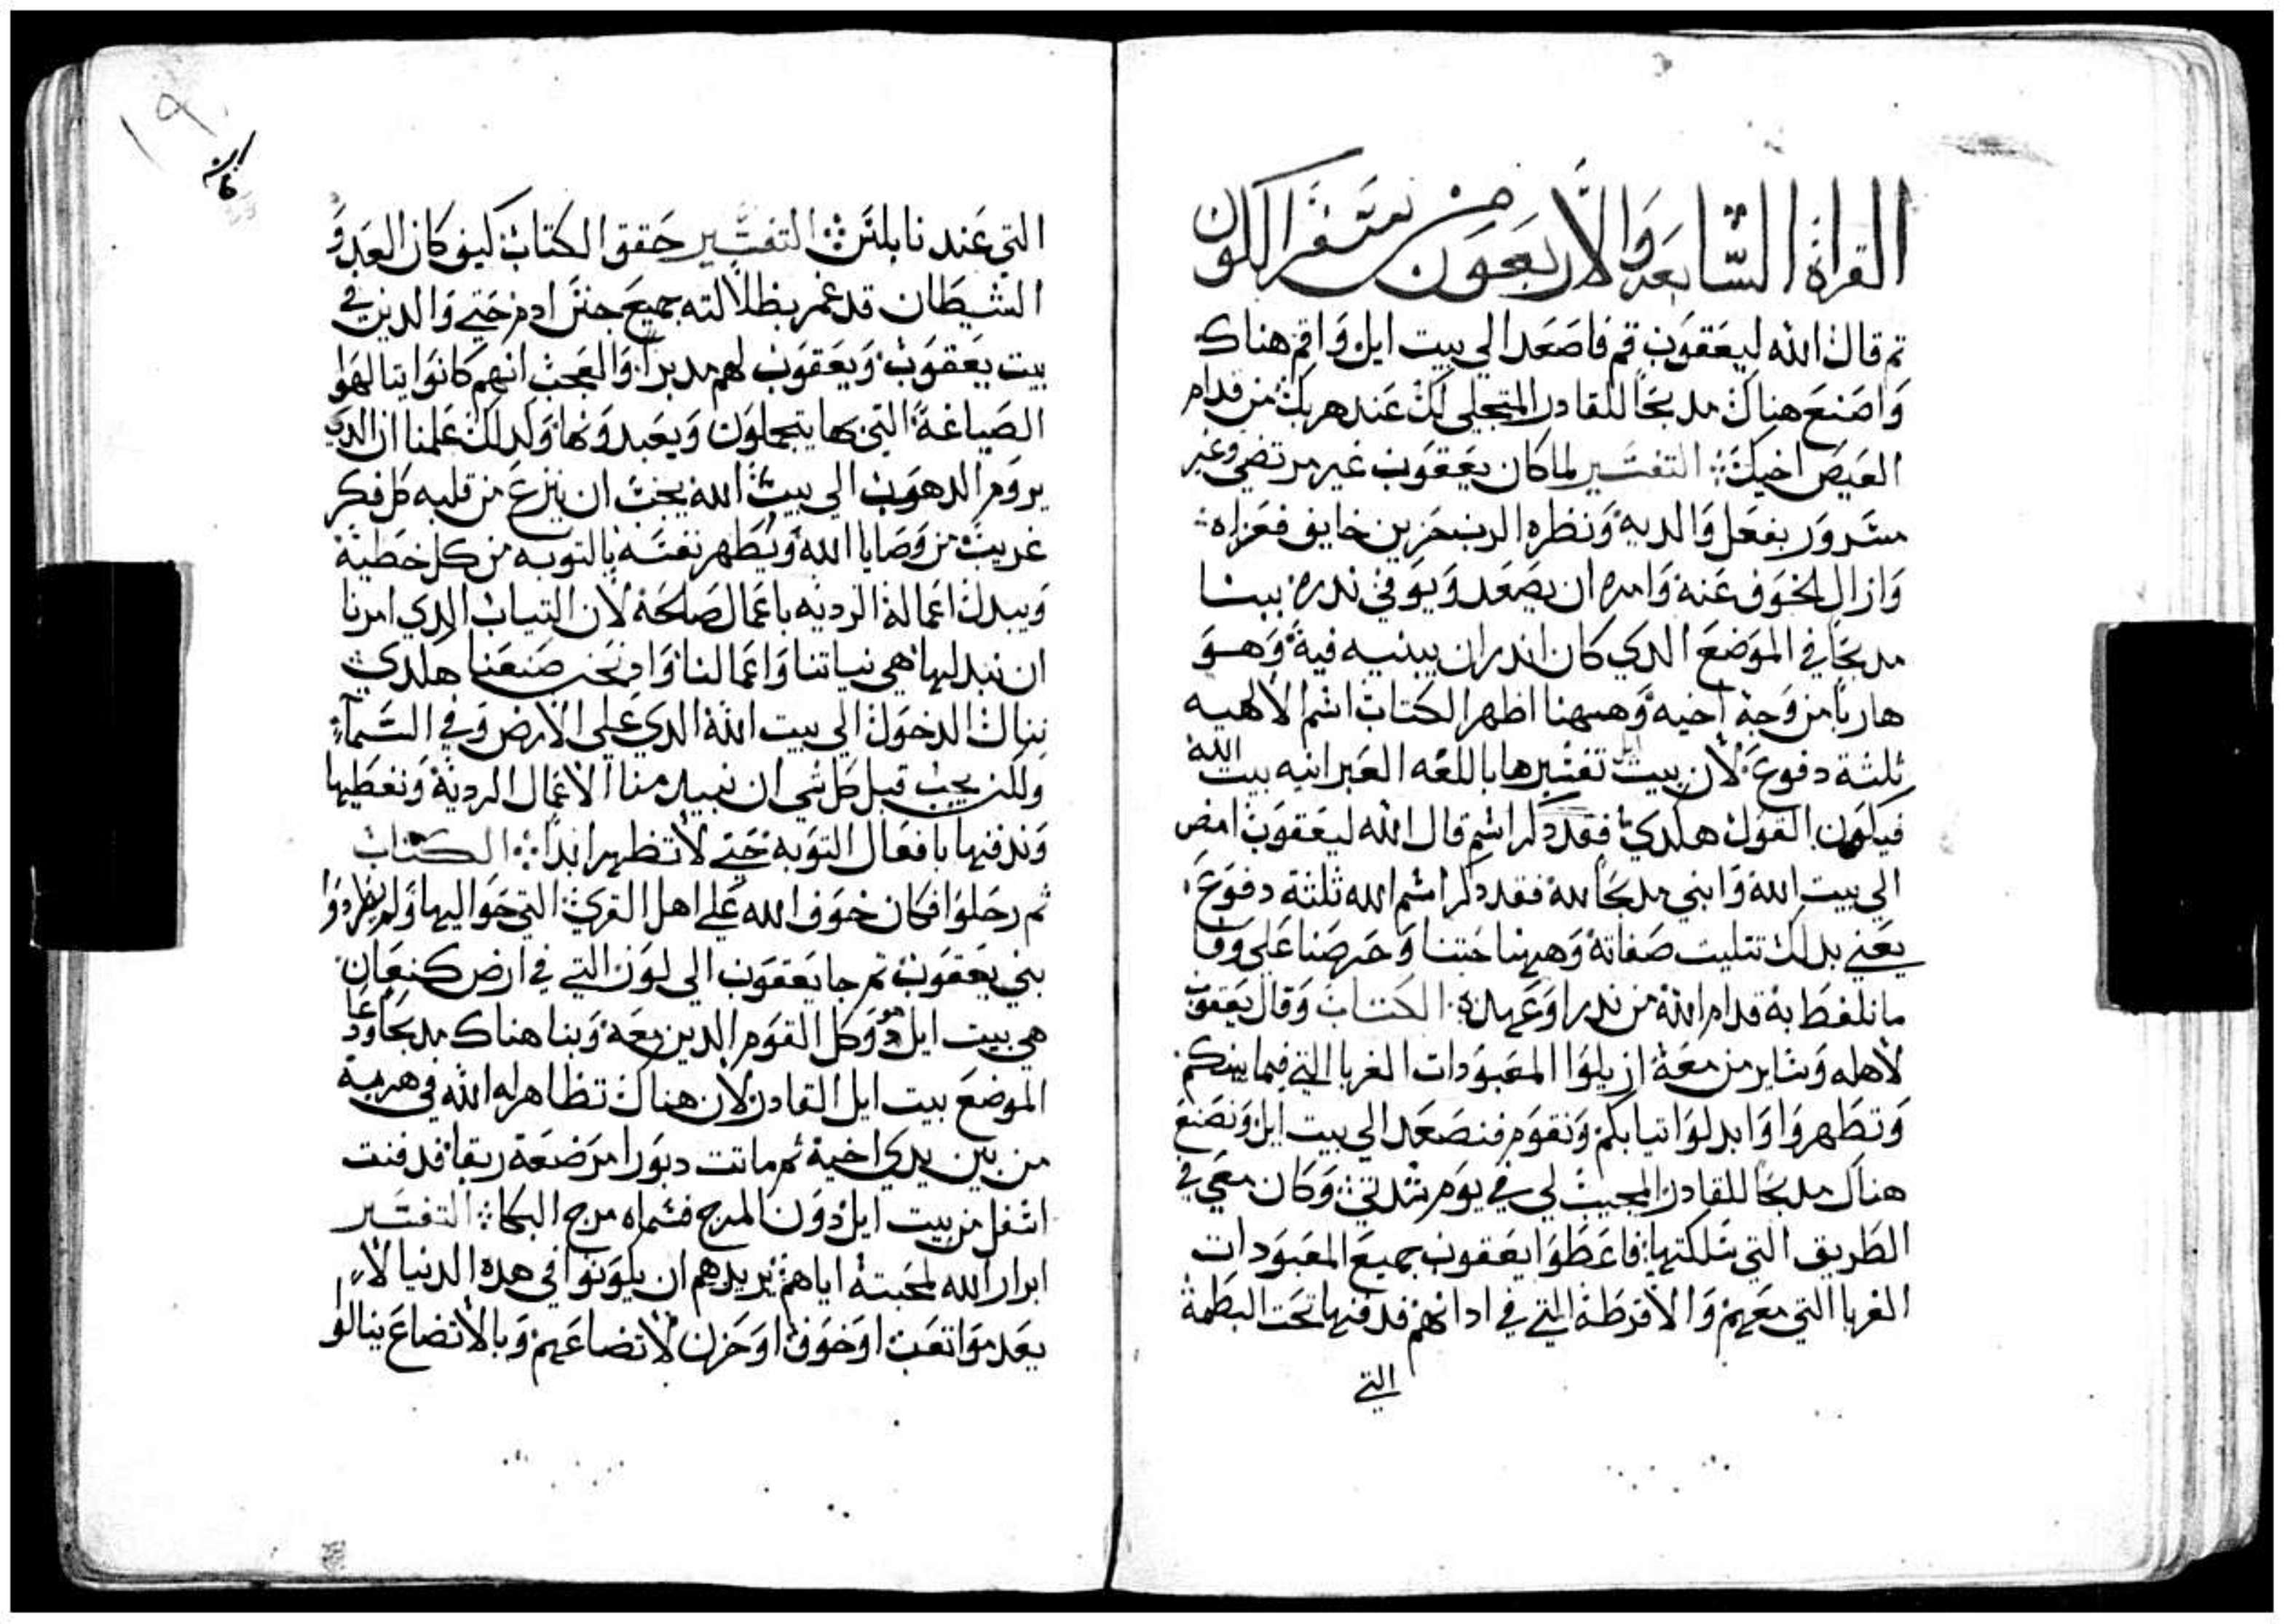 القراة السابعة والاربعون من سفر الكون
تم قال الله ليعقوب قم فاصعد الي بيت ايل واقم هناك
واصنع هناك مدبحا للقادر المتجلي لك عند هربك من قدام
العيص اخيك التفسير لما كان يعقوب غير مرتضي وغير
مسرور بفعل والديه ونظره الرب حزين خايف فعزاه
وازال الخوف عنه وامره ان يصعد ويوفي ندره ببنا
مدبحا في الموضع الدي كان اندر ان يبنيه فيه وهو
هاربا من وجه اخيه وههنا اظهر الكتاب اسم الالهيه
ثلثة دفوع لان بيت ايل تفسيرها باللغه العبرانيه بيت الله
فيكون القول هكدي فقد دكر اسم قال الله ليعقوب امض
الي بيت الله وابني مدبحا لله فقد دكر اسم الله ثلثة دفوع
يعني بدلك تتليت صفاته وههنا حتنا وحرصنا علي وفا
ما نلفظ به قدام الله من ندر او عهد الكتاب وقال يعقوب
لاهله وساير من معه ازيلوا المعبودات الغربا التي فيما بينكم
وتطهروا وابدلوا تيابكم ونقوم فنصعد الي بيت ايل ونصنع
هناك مدبحا للقادر المجيب لي في يوم شدتي وكان معي في
الطريق التي سلكتها فاعطوا يعقوب جميع المعبودات
الغربا التي معهم والاقرطة التي في ادانهم فدفنها تحت البطمة
التي
التي عند نابلس التفسير حقق الكتاب كيف كان العدو
الشيطان قد غمر بظلالته جميع جنس ادم حتي والدين في
بيت يعقوب ويعقوب لهم مدبرا والعجب انهم كانوا يتالهوا
الصياغة التي بها يتجملون ويعبدونها ولدلك علمنا ان الدي
يروم الدهوب الي بيت الله يجب ان ينزع من قلبه كل فكر
غريب من وصايا الله ويطهر نفسه بالتوبه من كل خطية
ويبدل اعماله الرديه باعمال صالحة لان التياب الدي امرنا
ان نبدلها هي نياتنا واعمالنا وادا نحن صنعنا هكدي
ننال الدخول الي بيت الله الدي علي الارض وفي السماء
ولكن يجب قبل كل شي ان نبيد منا الاعمال الردية ونغطيها
وندفنها بافعال التوبة حتي لا تظهر ابدا الكتاب
ثم رحلوا فكان خوف الله علي اهل القري التي حواليها ولم يطردوا
بني يعقوب تم جا يعقوب الي لون التي في ارض كنعان
هي بيت ايل هو وكل القوم الدين معه وبنا هناك مدبحا ودعا
الموضع بيت ايل القادر لان هناك تظاهر له الله في هربه
من بين يدي اخيه ثم ماتت دبورا مرضعة ربقا فدفنت
اسفل من بيت ايل دون المرج فسماه مرج البكا التفسير
ابرار الله لمحبته اياهم يريدهم ان يكونوا في هده الدنيا لا
يعدموا تعب او خوف او حزن لاتضاعهم وبالاتضاع ينالوا